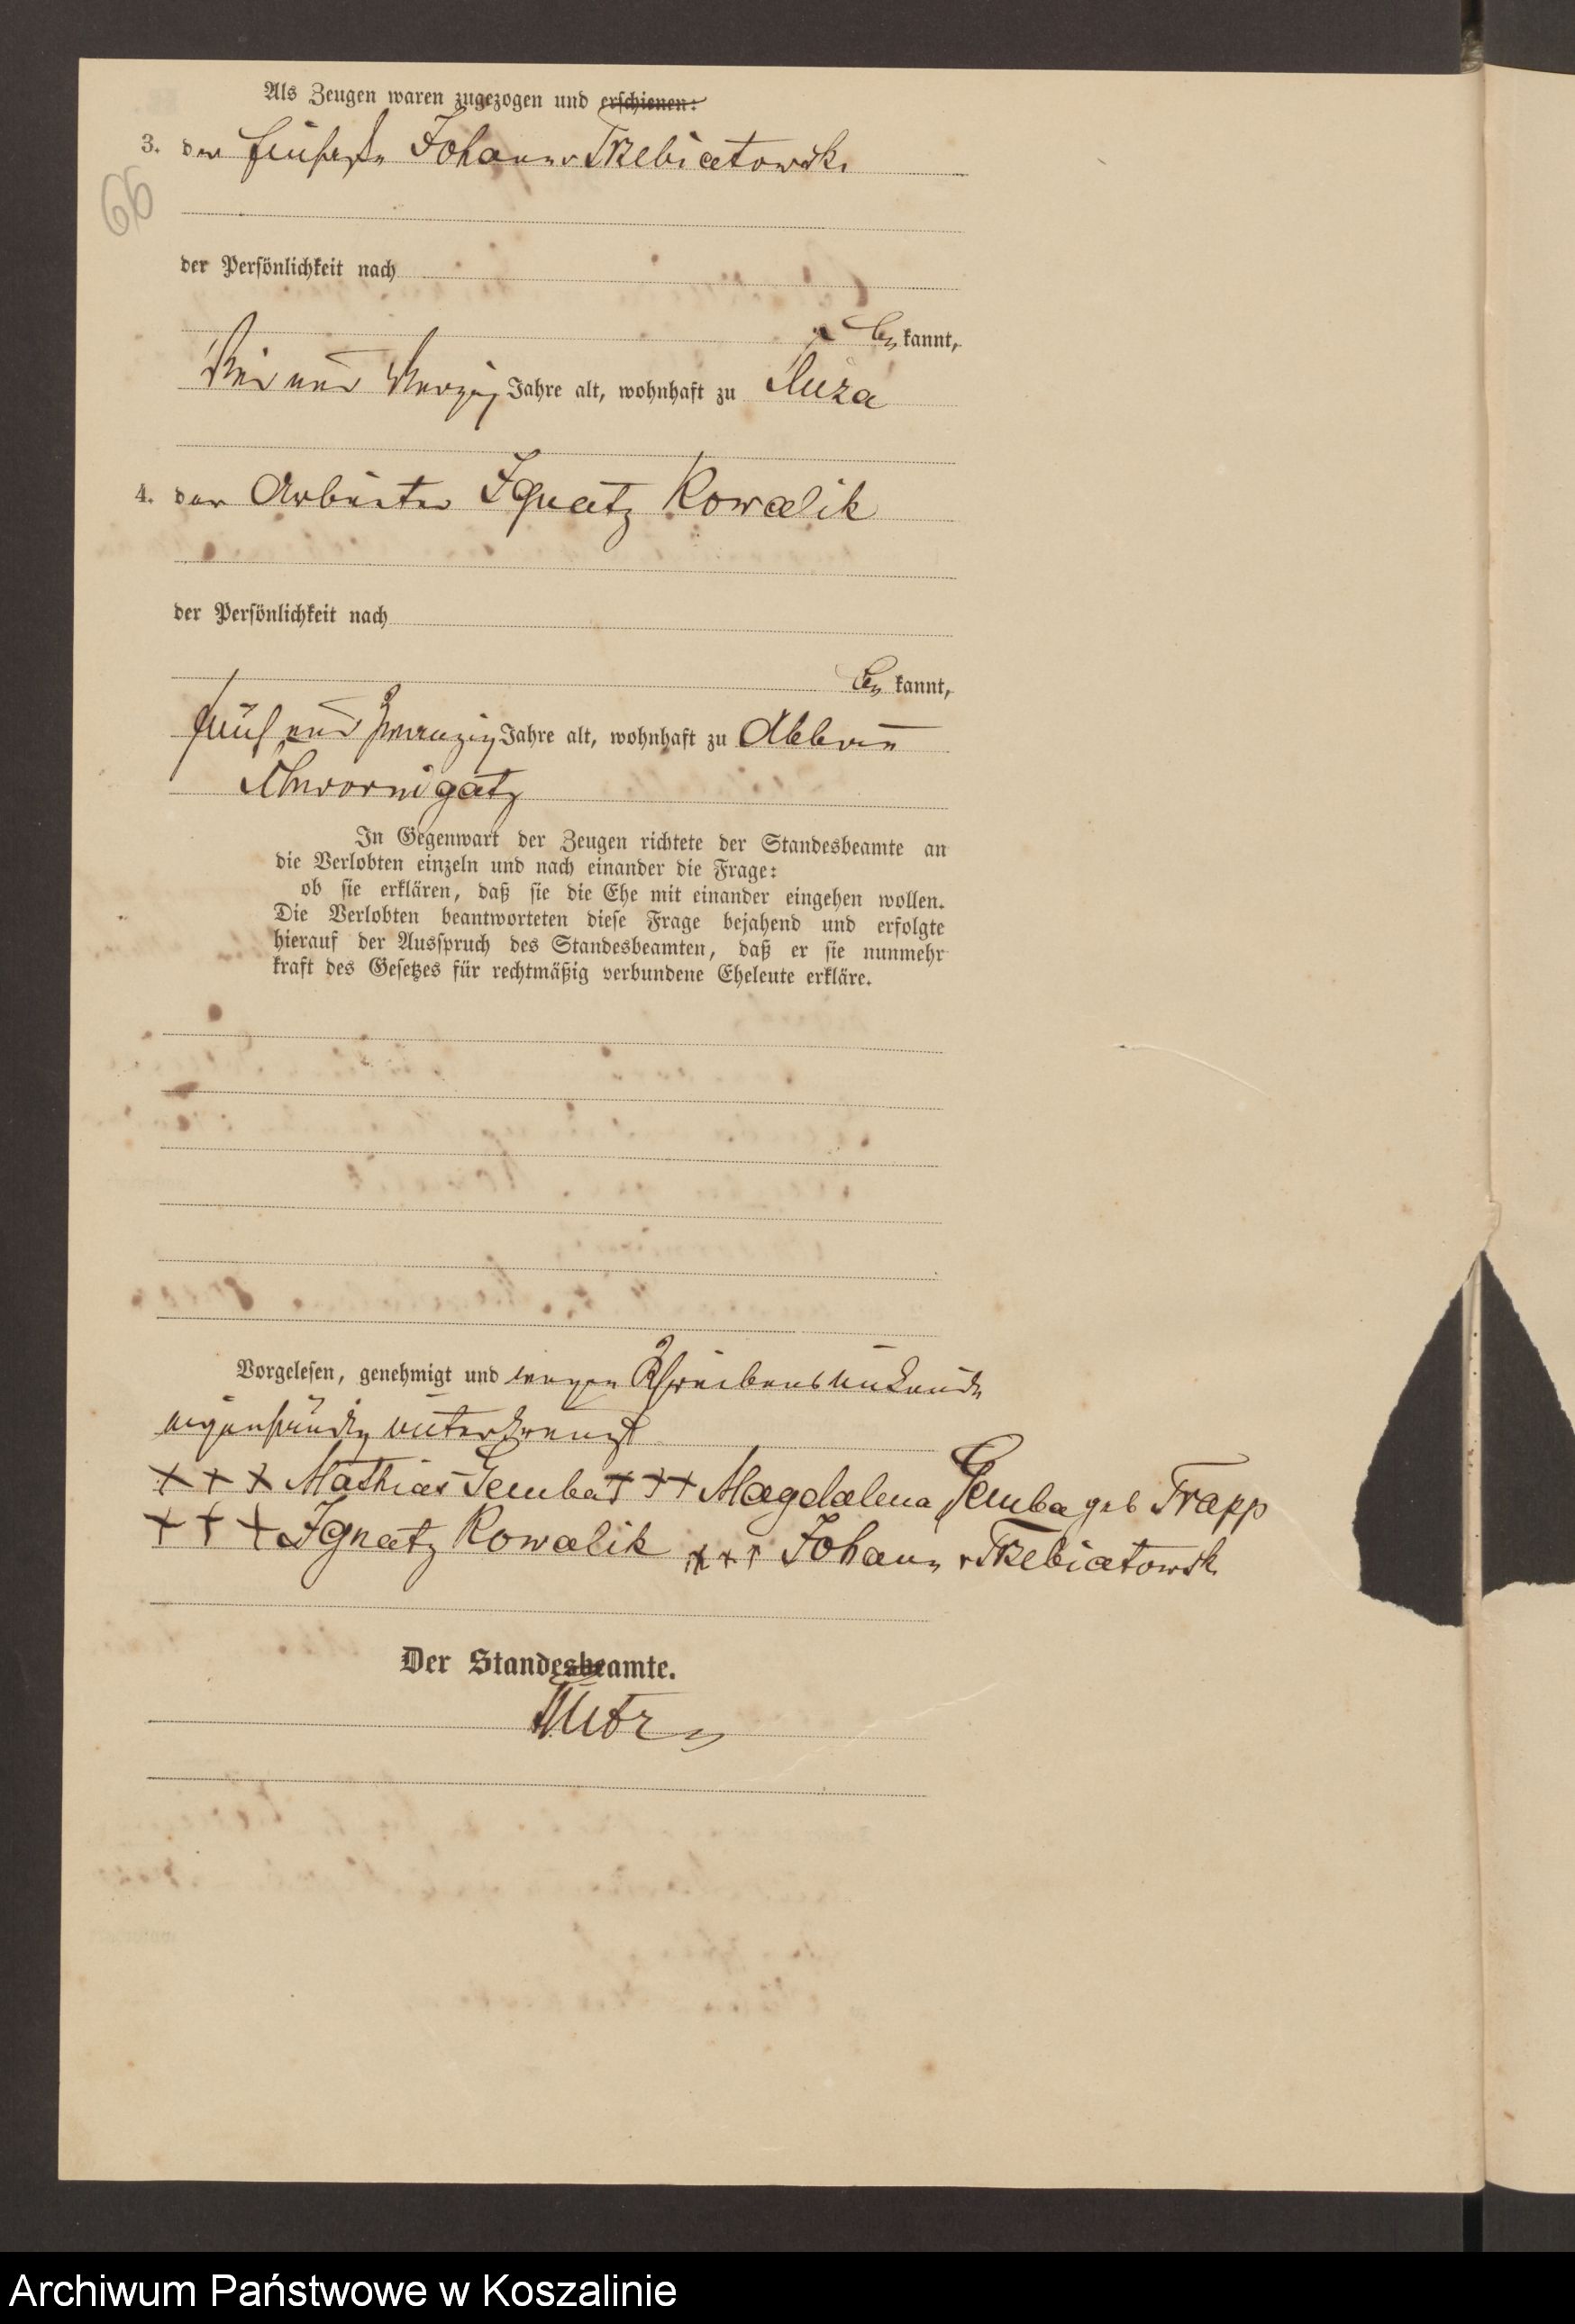 Als Zeugen waren zugezogen und erschienen:
3. der Johann v Trzebiatowski
66
der Persönlichkeit nach
be kannt,
vier und vierzig Jahre alt, wohnhaft zu
4. der Arbeiter Ignatz Kowalik
der Persönlichkeit nach
be kannt,
fünf und zwanzig Jahre alt, wohnhaft zu Abbau
Schwornigatz
In Gegenwart der Zeugen richtete der Standesbeamte an
die Verlobten einzeln und nach einander die Frage:
ob sie erklären, daß sie die Ehe mit einander eingehen wollen.
Die Verlobten beantworteten diese Frage bejahend und erfolgte
hierauf der Ausspruch des Standesbeamten, daß er sie nunmehr
kraft des Gesetzes für rechtmäßig verbundene Eheleute erkläre.
Vorgelesen, genehmigt und wegen Schreibensunkunde
eigenhändig unterkreuzt
+++ Mathias Gemba +++ Magdalena Gemba geb Trapp
+++ Ignatz Kowalik +++ Johann v Trzebiatowski
Der Standesbeamte.
Archiwum Państwowe w Koszalinie